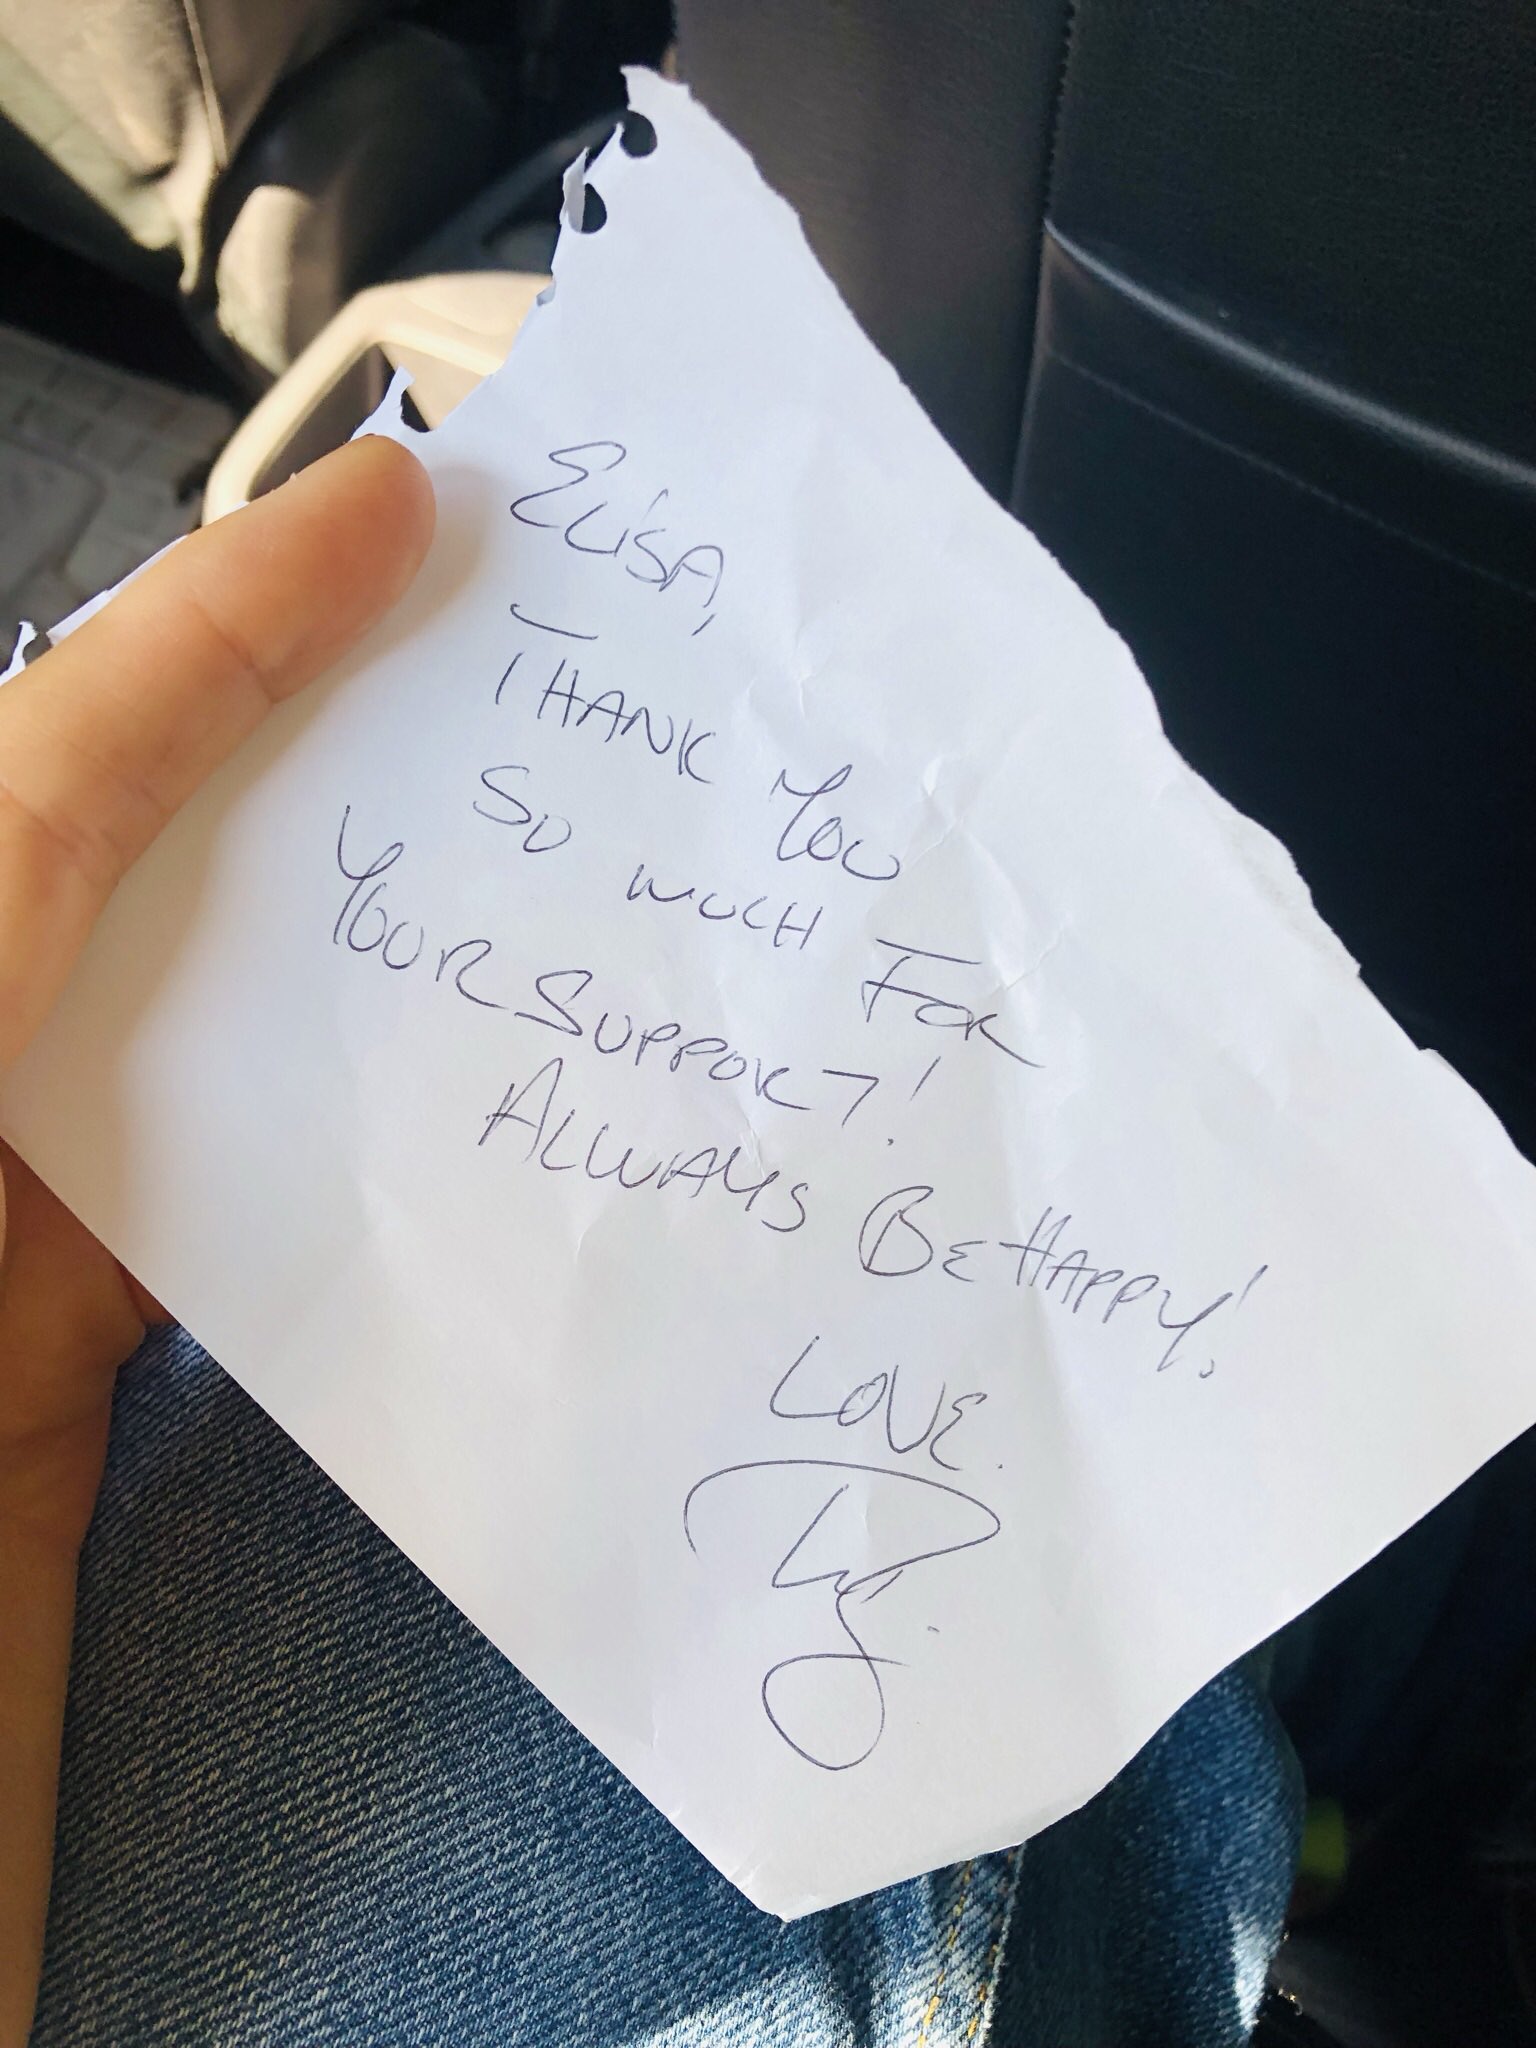 ELISA,
THANK YOU
SO MUCH FOR
YOUR SUPPORT!
ALWAYS BE HAPPY!
LOVE.